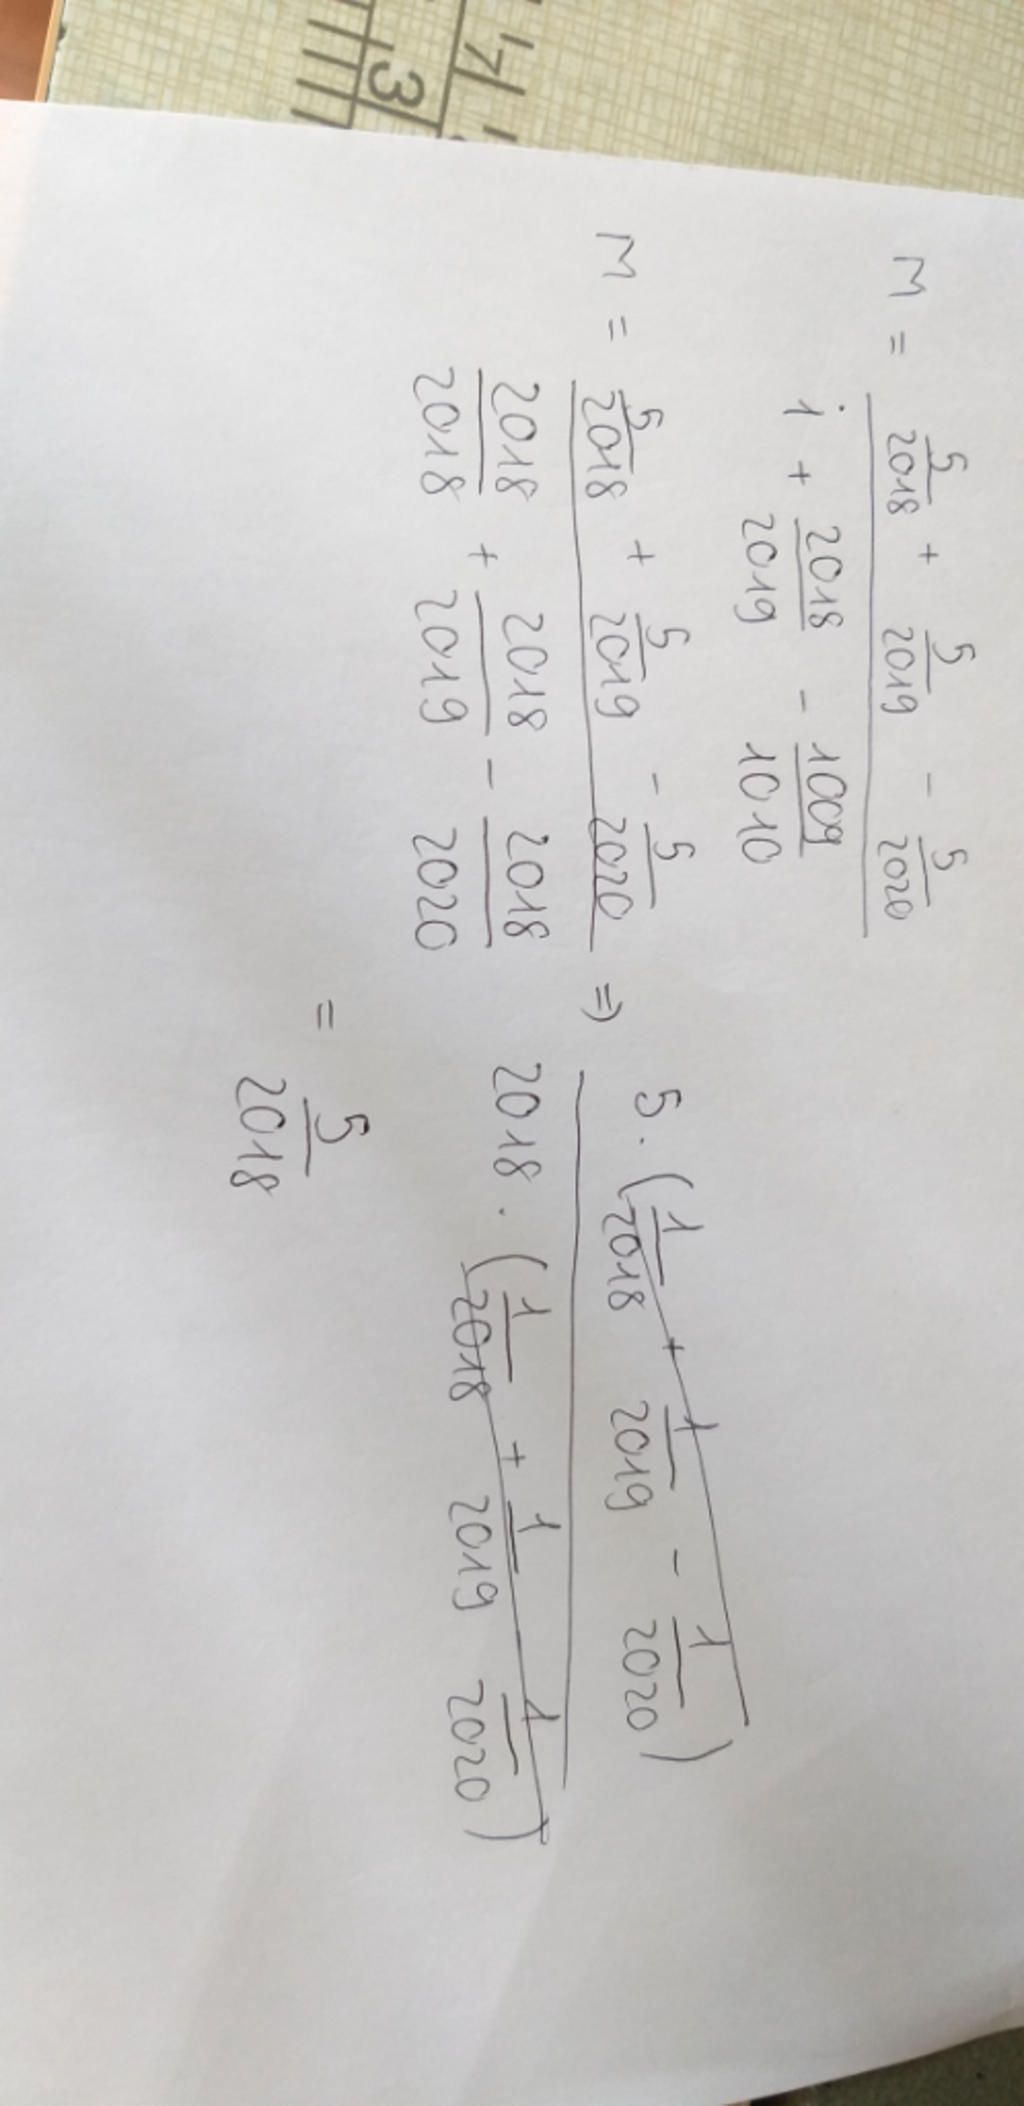 M = 5/2018 + 5/2019 - 5/2020
1 + 2018/2019 - 1009/1010
M = 5/2018 + 5/2019 - 5/2020 => 5 · (1/2018 + 1/2019 - 1/2020)
2018/2018 + 2018/2019 - 2018/2020 2018 · (1/2018 + 1/2019 1/2020)
= 5/2018
7
3